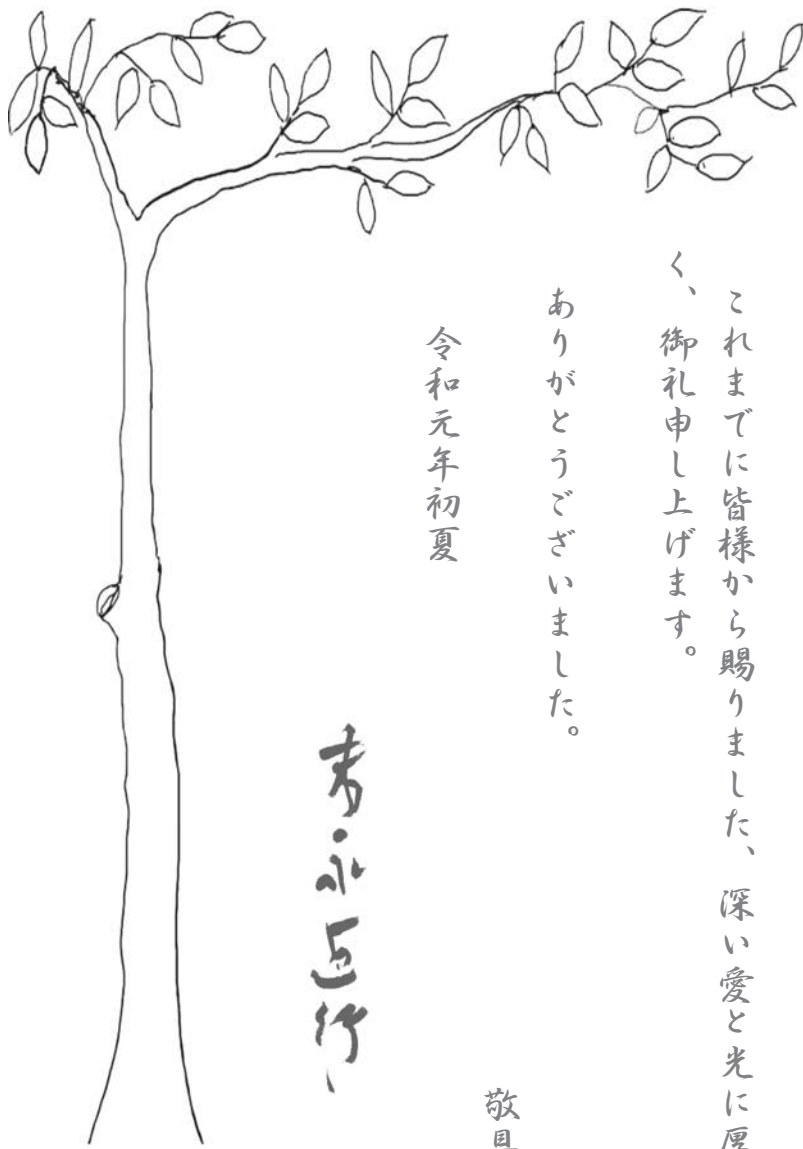 これまでに皆様から賜りました、深い愛と光に厚
く、御礼申し上げます。
ありがとうございました。
敬具
令和元年初夏